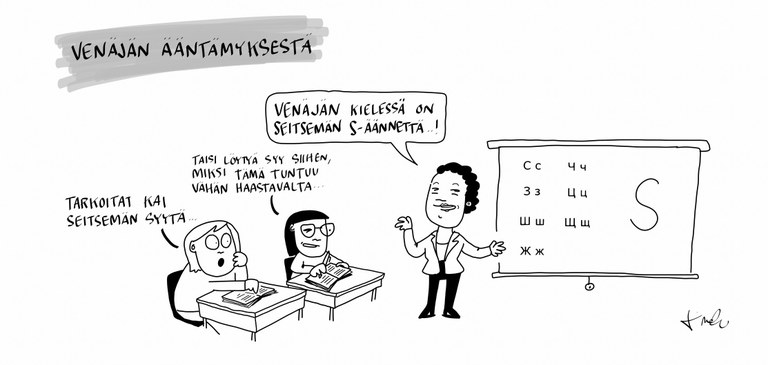 VENÄJÄN ÄÄNTÄMYKSESTÄ
VENÄJÄN KIELESSÄ ON
SEITSEMÄN S-ÄÄNNETTÄ..!
TAISI LÖYTYÄ SYY SIIHEN,
MIKSI TÄMÄ TUNTUU
VÄHÄN HAASTAVALTA...
TARKOITAT KAI
SEITSEMÄN SYYTÄ...
С с Ч ч
З з Ц ц
Ш ш Щ щ
Ж ж
S